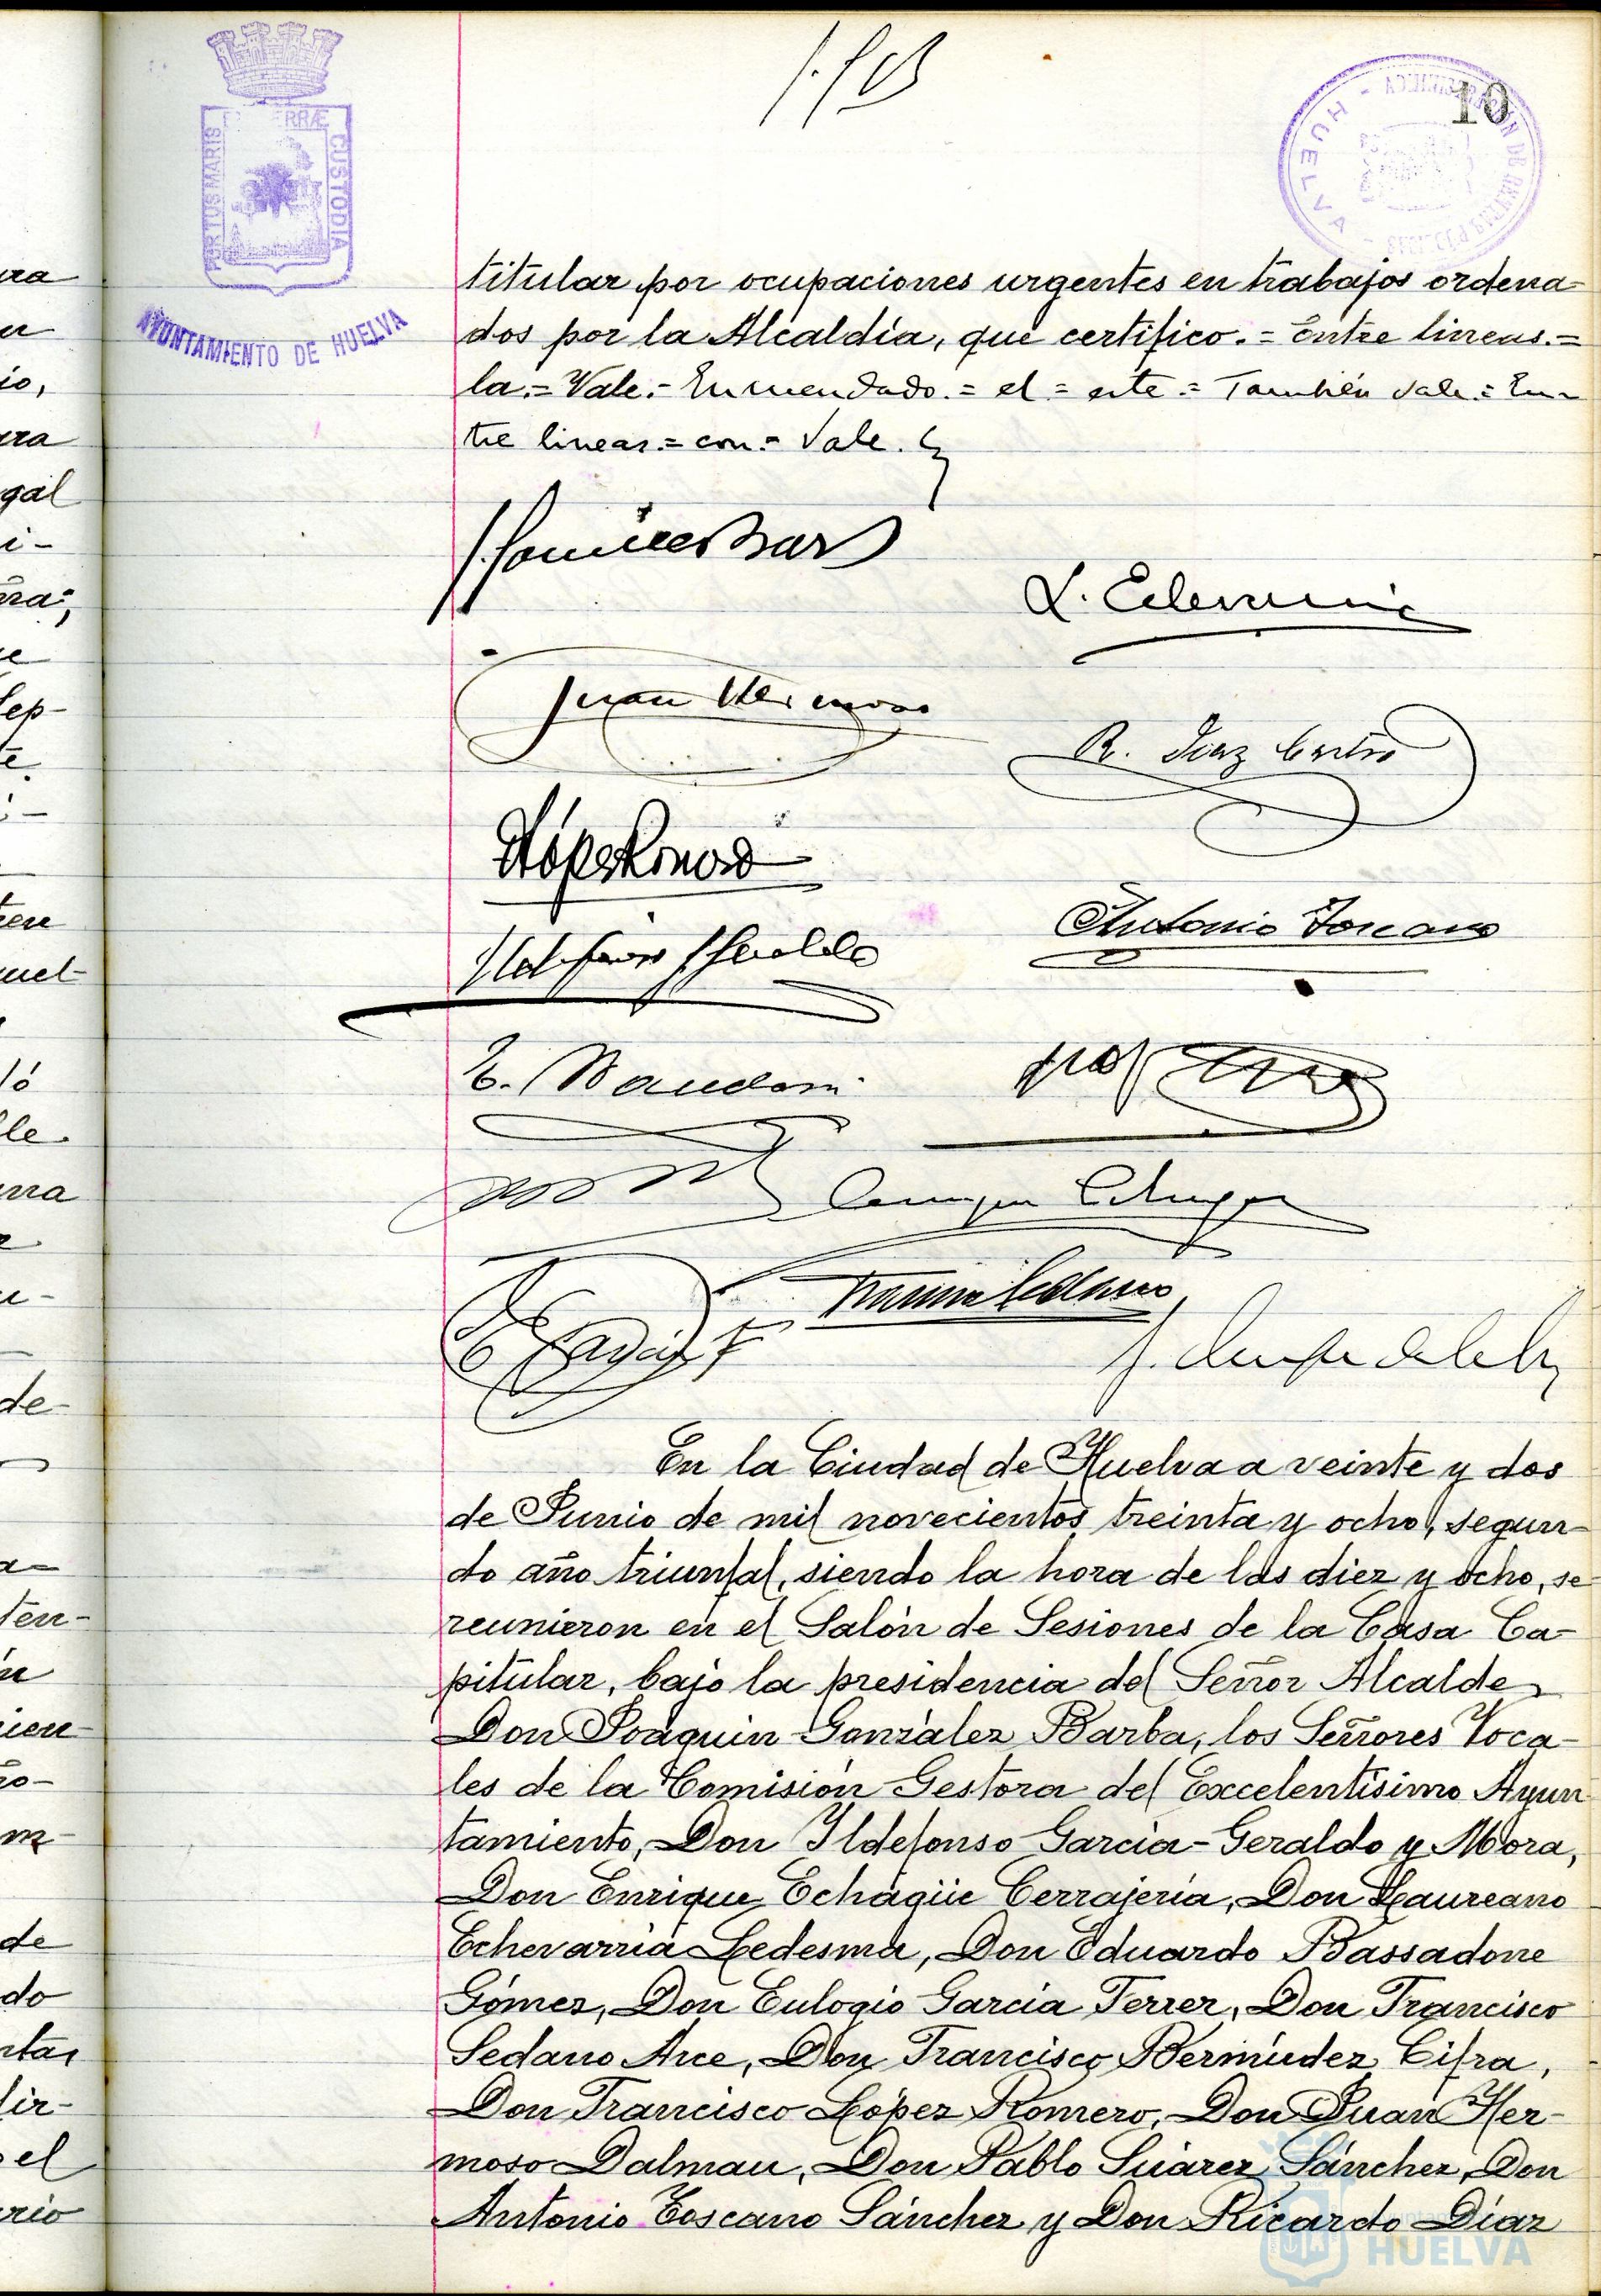 10
PORTUS MARIS
TERRÆ
CUSTODIA
AYUNTAMIENTO DE HUELVA
HUELVA
titular por ocupaciones urgentes en trabajos ordena=
dos por la Alcaldía, que certifico.= Entre lineas.=
la.= Vale.= Enmendado.= el = este = También vale.= En-
tre lineas.= con.= Vale.
L. Echevarria
Juan Hermoso
R. Diaz Castro
F López Romero
Antonio Toscano
Ildefonso Gª Geraldo
E. Bassadone
Enrique Echague
Francisco Sedano
En la Ciudad de Huelva a veinte y dos
de Junio de mil novecientos treinta y ocho, segun-
do año triunfal, siendo la hora de las diez y ocho, se
reunieron en el Salón de Sesiones de la Casa Ca-
pitular, bajo la presidencia del Señor Alcalde
Don Joaquin González Barba, los Señores Voca-
les de la Comisión Gestora del Excelentísimo Ayun
tamiento, Don Ildefonso García-Geraldo y Mora,
Don Enrique Echagüe Cerrajeria, Don Laureano
Echevarria Ledesma, Don Eduardo Bassadone
Gómez, Don Eulogio Garcia Ferrer, Don Francisco
Sedano Arce, Don Francisco Bermúdez Cifra,
Don Francisco López Romero, Don Juan Her-
moso Dalmau, Don Pablo Suárez Sánchez, Don
Antonio Toscano Sánchez y Don Ricardo Díaz
HUELVA